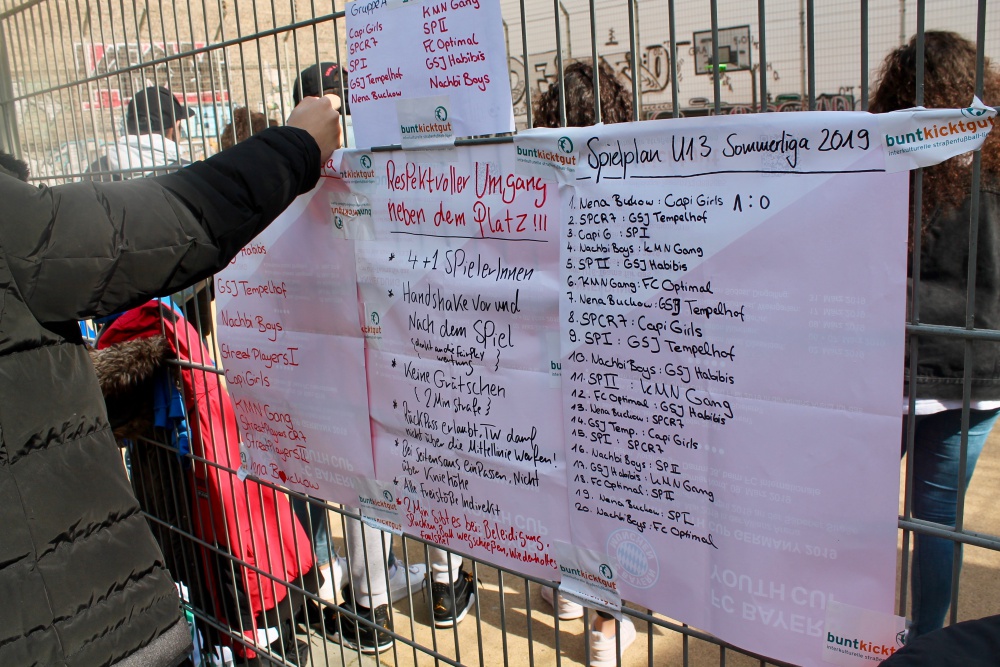 Gruppe A
Capi Girls
SPCR7
SP I
GSJ Tempelhof
Nena Buckow
KMN Gang
SP II
FC Optimal
GSJ Habibis
Nachbi Boys
buntkicktgut
Habibis
GSJ Tempelhof
Nachbi Boys
Street Players I
Capi Girls
KMN Gang
StreetPlayers CR7
StreetPlayers II
Nena Buckow
buntkicktgut
Respektvoller Umgang
neben dem Platz!!!
* 4+1 SpielerInnen
* Handshake vor und
Nach dem Spiel
* Keine Grätschen
{ 2 Min Strafe }
* Rückpass erlaubt, TW darf
nicht über die Mittellinie werfen!
* Bei Seitenaus einpassen. Nicht
über Kniehöhe
* Alle Freistöße Indirekt
* 2 Min gibt es bei: Beleidigung,
Spucken, Ball wegschießen, Wiederholtes
Foulspiel
buntkicktgut
buntkicktgut
buntkicktgut
interkulturelle straßenfußball-liga
Spielplan U13 Sommerliga 2019
1. Nena Buckow : Capi Girls 1:0
2. SPCR7 : GSJ Tempelhof
3. Capi G : SP I
4. Nachbi Boys : KMN Gang
5. SP II : GSJ Habibis
6. KMN Gang : FC Optimal
7. Nena Buckow : GSJ Tempelhof
8. SPCR7 : Capi Girls
9. SP I : GSJ Tempelhof
10. Nachbi Boys : GSJ Habibis
11. SP II : KMN Gang
12. FC Optimal : GSJ Habibis
13. Nena Buckow : SPCR7
14. GSJ Temp. : Capi Girls
15. SP I : SPCR7
16. Nachbi Boys : SP II
17. GSJ Habibis : KMN Gang
18. FC Optimal : SP II
19. Nena Buckow : SP I
20. Nachbi Boys : FC Optimal
FC BAYERN
YOUTH CUP
YOUTH CUP GERMANY 2019
buntkicktgut